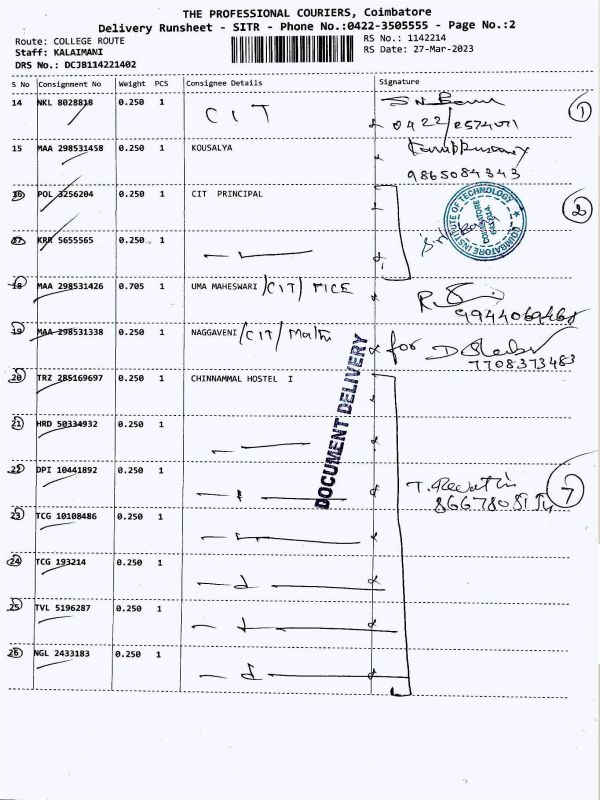 THE PROFESSIONAL COURIERS, Coimbatore
Delivery Runsheet - SITR - Phone No.:0422-3505555 - Page No.:2
Route: COLLEGE ROUTE
Staff: KALAIMANI
DRS No.: DCJB114221402
RS No.: 1142214
RS Date: 27-Mar-2023
S No Consignment No Weight PCS Consignee Details Signature
14 NKL 8028818 0.250 1 CIT
0422/2574071
1
15 MAA 298531458 0.250 1 KOUSALYA
9865084343
16 POL 3256204 0.250 1 CIT PRINCIPAL
COIMBATORE INSTITUTE OF TECHNOLOGY
COIMBATORE
641014
2
17 KRR 5655565 0.250 1
18 MAA 298531426 0.705 1 UMA MAHESWARI /CIT/ MCE
9944069468
19 MAA 298531338 0.250 1 NAGGAVENI /CIT/ Maths
for
7708373483
DOCUMENT DELIVERY
20 TRZ 285169697 0.250 1 CHINNAMMAL HOSTEL I
21 HRD 50334932 0.250 1
22 DPI 10441892 0.250 1
T. Revathi
7
23 TCG 10108486 0.250 1
24 TCG 193214 0.250 1
25 TVL 5196287 0.250 1
26 NGL 2433183 0.250 1